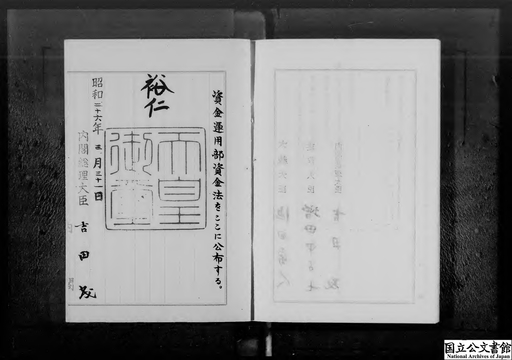 資金運用部資金法をここに公布する。
裕仁
天皇
御璽
昭和二十六年三月三十一日
内閣総理大臣 吉田茂
国立公文書館
National Archives of Japan